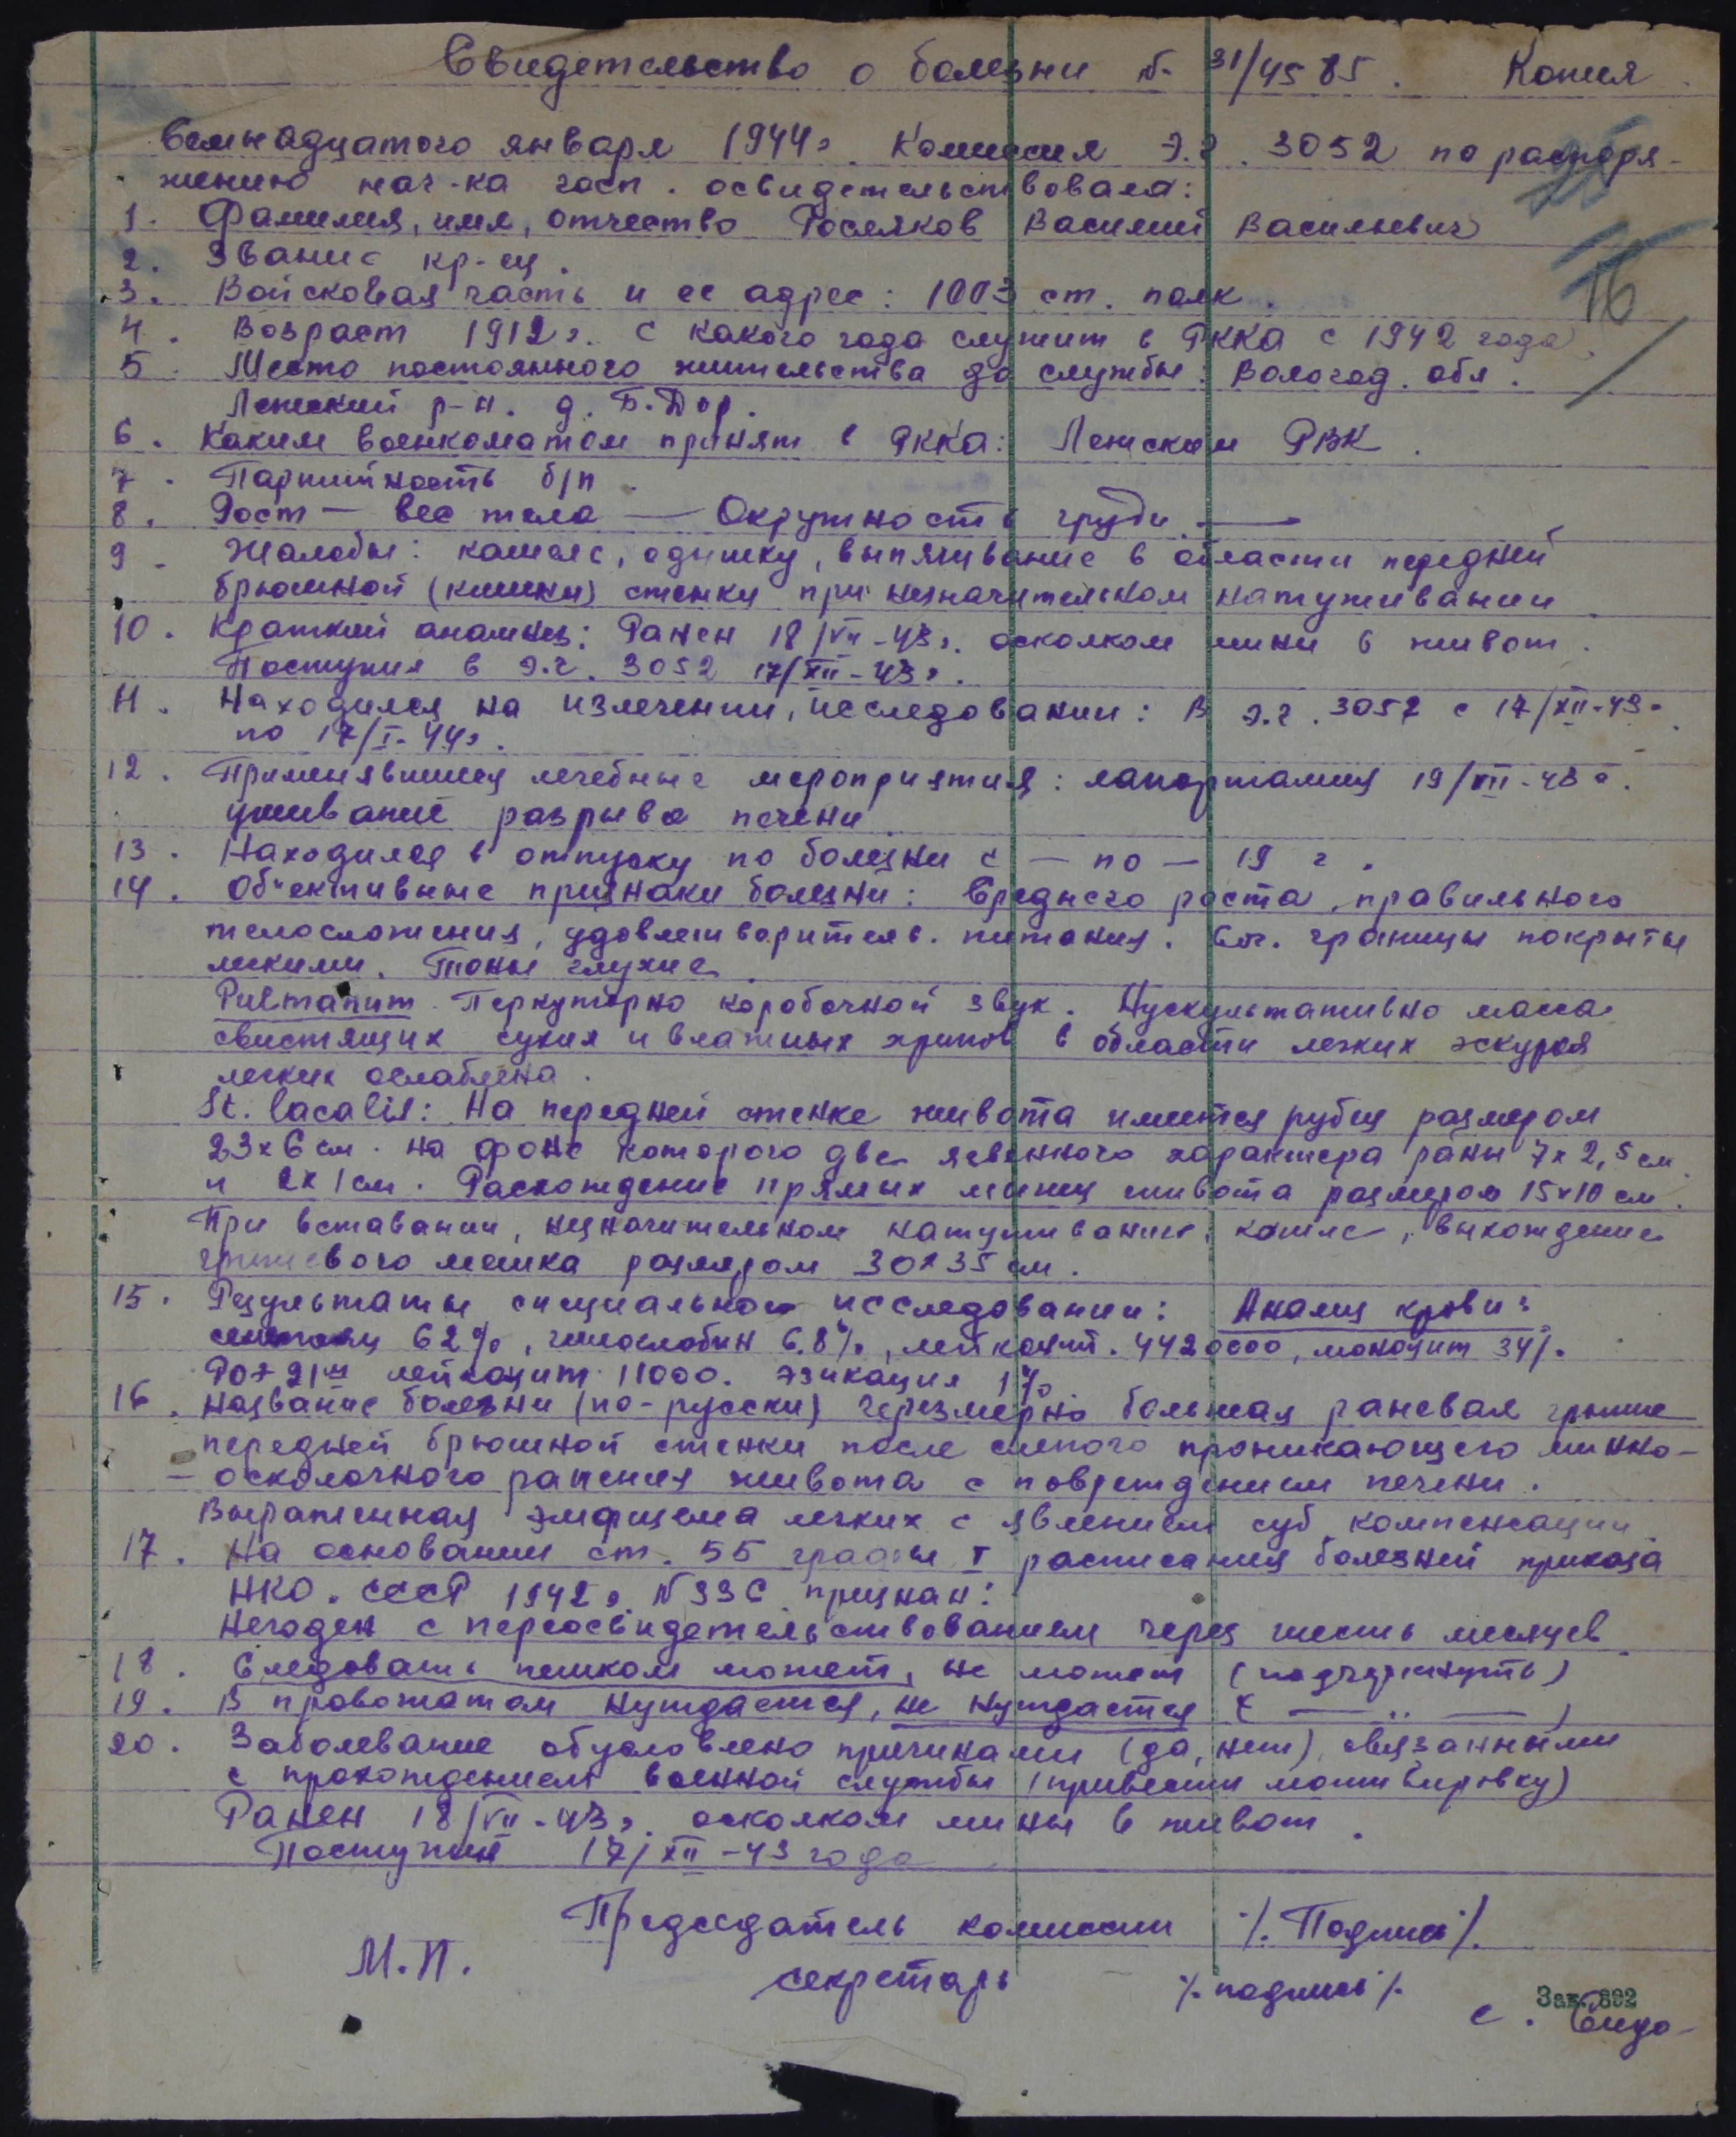 Свидетельство о болезни № 31/4585. Копия
Семнадцатого января 1944г. Комиссия Э.г. 3052 по распоря-
жению нач-ка госп. освидетельствовала:
1. Фамилия, имя, отчество Росляков Василий Васильевич
2. Звание кр-ец.
3. Войсковая часть и ее адрес: 1003 ст. полк.
4. Возраст 1912г. С какого года служит в РККА с 1942 года.
5. Место постоянного жительства до службы: Вологод. обл.
Лежский р-н. д. Б. Двор.
6. Каким военкоматом принят в РККА: Лежским РВК.
7. Партийность б/п.
8. Рост — вес тела — Окружность груди —
9. Жалобы: кашель, одышку, выпячивание в области передней
брюшной (кишки) стенки при незначительном натуживании.
10. Краткий анамнез: Ранен 18/VII-43г. осколком мины в живот.
Поступил в Э.г. 3052 17/XII-43г.
11. Находился на излечении, исследовании: В Э.г. 3052 с 17/XII-43г
по 17/I-44г.
12. Применявшиеся лечебные мероприятия: лапортамия 19/VII-43г.
ушивание разрыва печени.
13. Находился в отпуску по болезни с — по — 19 г.
14. Об"ективные признаки болезни: Среднего роста, правильного
телосложения, удовлетворительн. питания. Сог. границы покрыты
легкими. Тоны глухие.
Перкуторно коробочной звук. Аускультативно масса
свистящих сухих и влажных хрипов в области легких эскурсия
легких ослаблена.
St. localis: На передней стенке живота имеется рубец размером
23х6 см. на фоне которого две язвенного характера раны 7х2,5 см
и 2х1 см. Расхождение прямых мышц живота размером 15х10 см.
При вставании, незначительном натуживании, кашле, выхождение
грыжевого мешка размером 30х35 см.
15. Результаты специальном исследовании: Анализ крови:
62%, гемоглобин 6.8%, лейкоцит. 4420000, моноцит 34%.
РОЭ 21мм лейкоцит 11000. 1%
16. Название болезни (по-русски) Черезмерно большая раневая грыжа
передней брюшной стенки после слепого проникающего минно-
-осколочного ранения живота с повреждением печени.
Выраженная эмфизема легких с явлением суб. компенсации.
17. На основании ст. 55 графы I расписания болезней приказа
НКО. СССР 1942г. N 336 признан:
Негоден с переосвидетельствованием через шесть месяцев.
18. Следовать пешком может, не может (подчеркнуть)
19. В провожатом нуждается, не нуждается ( — .. — )
20. Заболевание обусловлено причинами (да, нет), связанными
с прохождением военной службы (привести мотивировку)
Ранен 18/VII-43г. осколком мины в живот.
Поступил 17/XII-43 года
Председатель комиссии /. Подпись/.
М.П.
секретарь /. подпись/.
Зак. 892
16